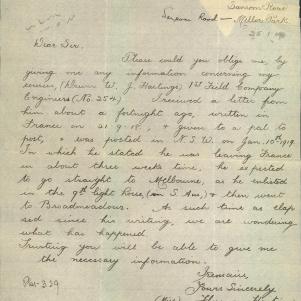 Sansom Road
Sansom Road — Miller Park
25
Dear Sir,
Please could you oblige me, by
giving me any information concerning my
cousin, (Driver W. J. Hartung) 1st Field Company
Engineers (No. 254). I received a letter from
him about a fortnight ago, written in
France on 21.9.18, & given to a pal to
post, & was posted in N.S.W. on Jan. 10th 1919.
In which he stated he was leaving France
in about three weeks time, he expected
to go straight to Melbourne, as he enlisted
in the 9th Light Horse, (in S. Aus,) & then went
to Broadmeadows. As such time as elap
sed since his writing, we are wondering
what has happened.
Trusting you will be able to give me
the necessary information.
I remain,
Yours Sincerely
(Miss)